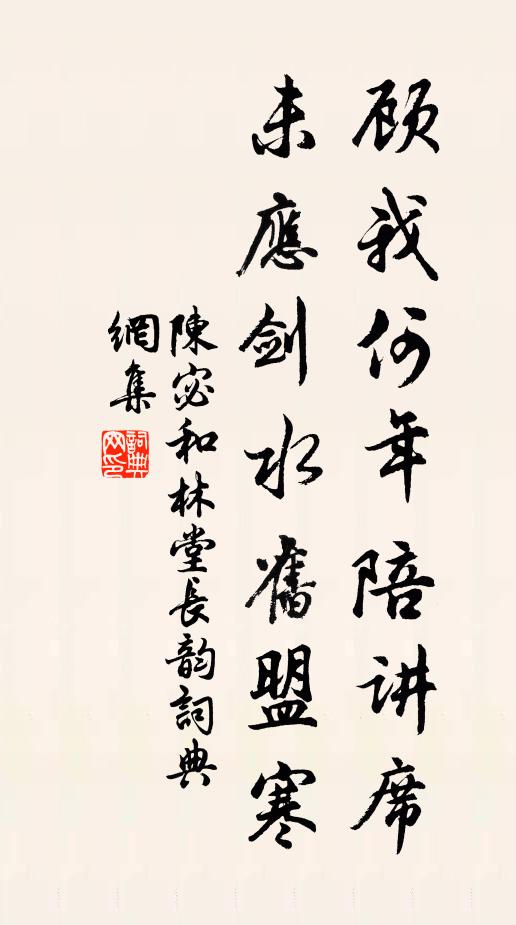 顾我何年陪讲席
未應剑水舊盟寒
陳宓和林堂長韵詞典
網集
詞典网印